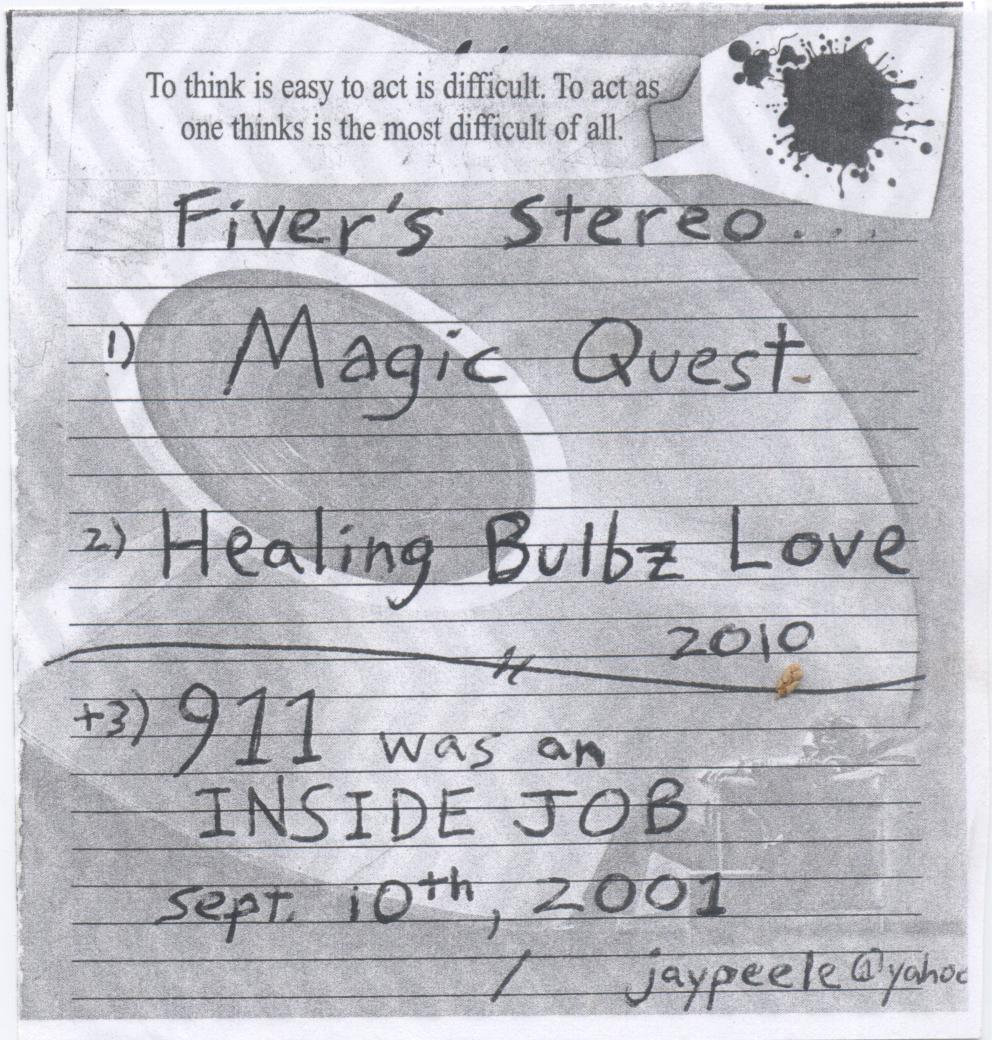 To think is easy to act is difficult. To act as
one thinks is the most difficult of all.
Fiver's Stereo...
1) Magic Quest
2) Healing Bulbz Love
2010
+3) 911 was an
INSIDE JOB
Sept. 10th, 2001
/ jaypeele@yahoo